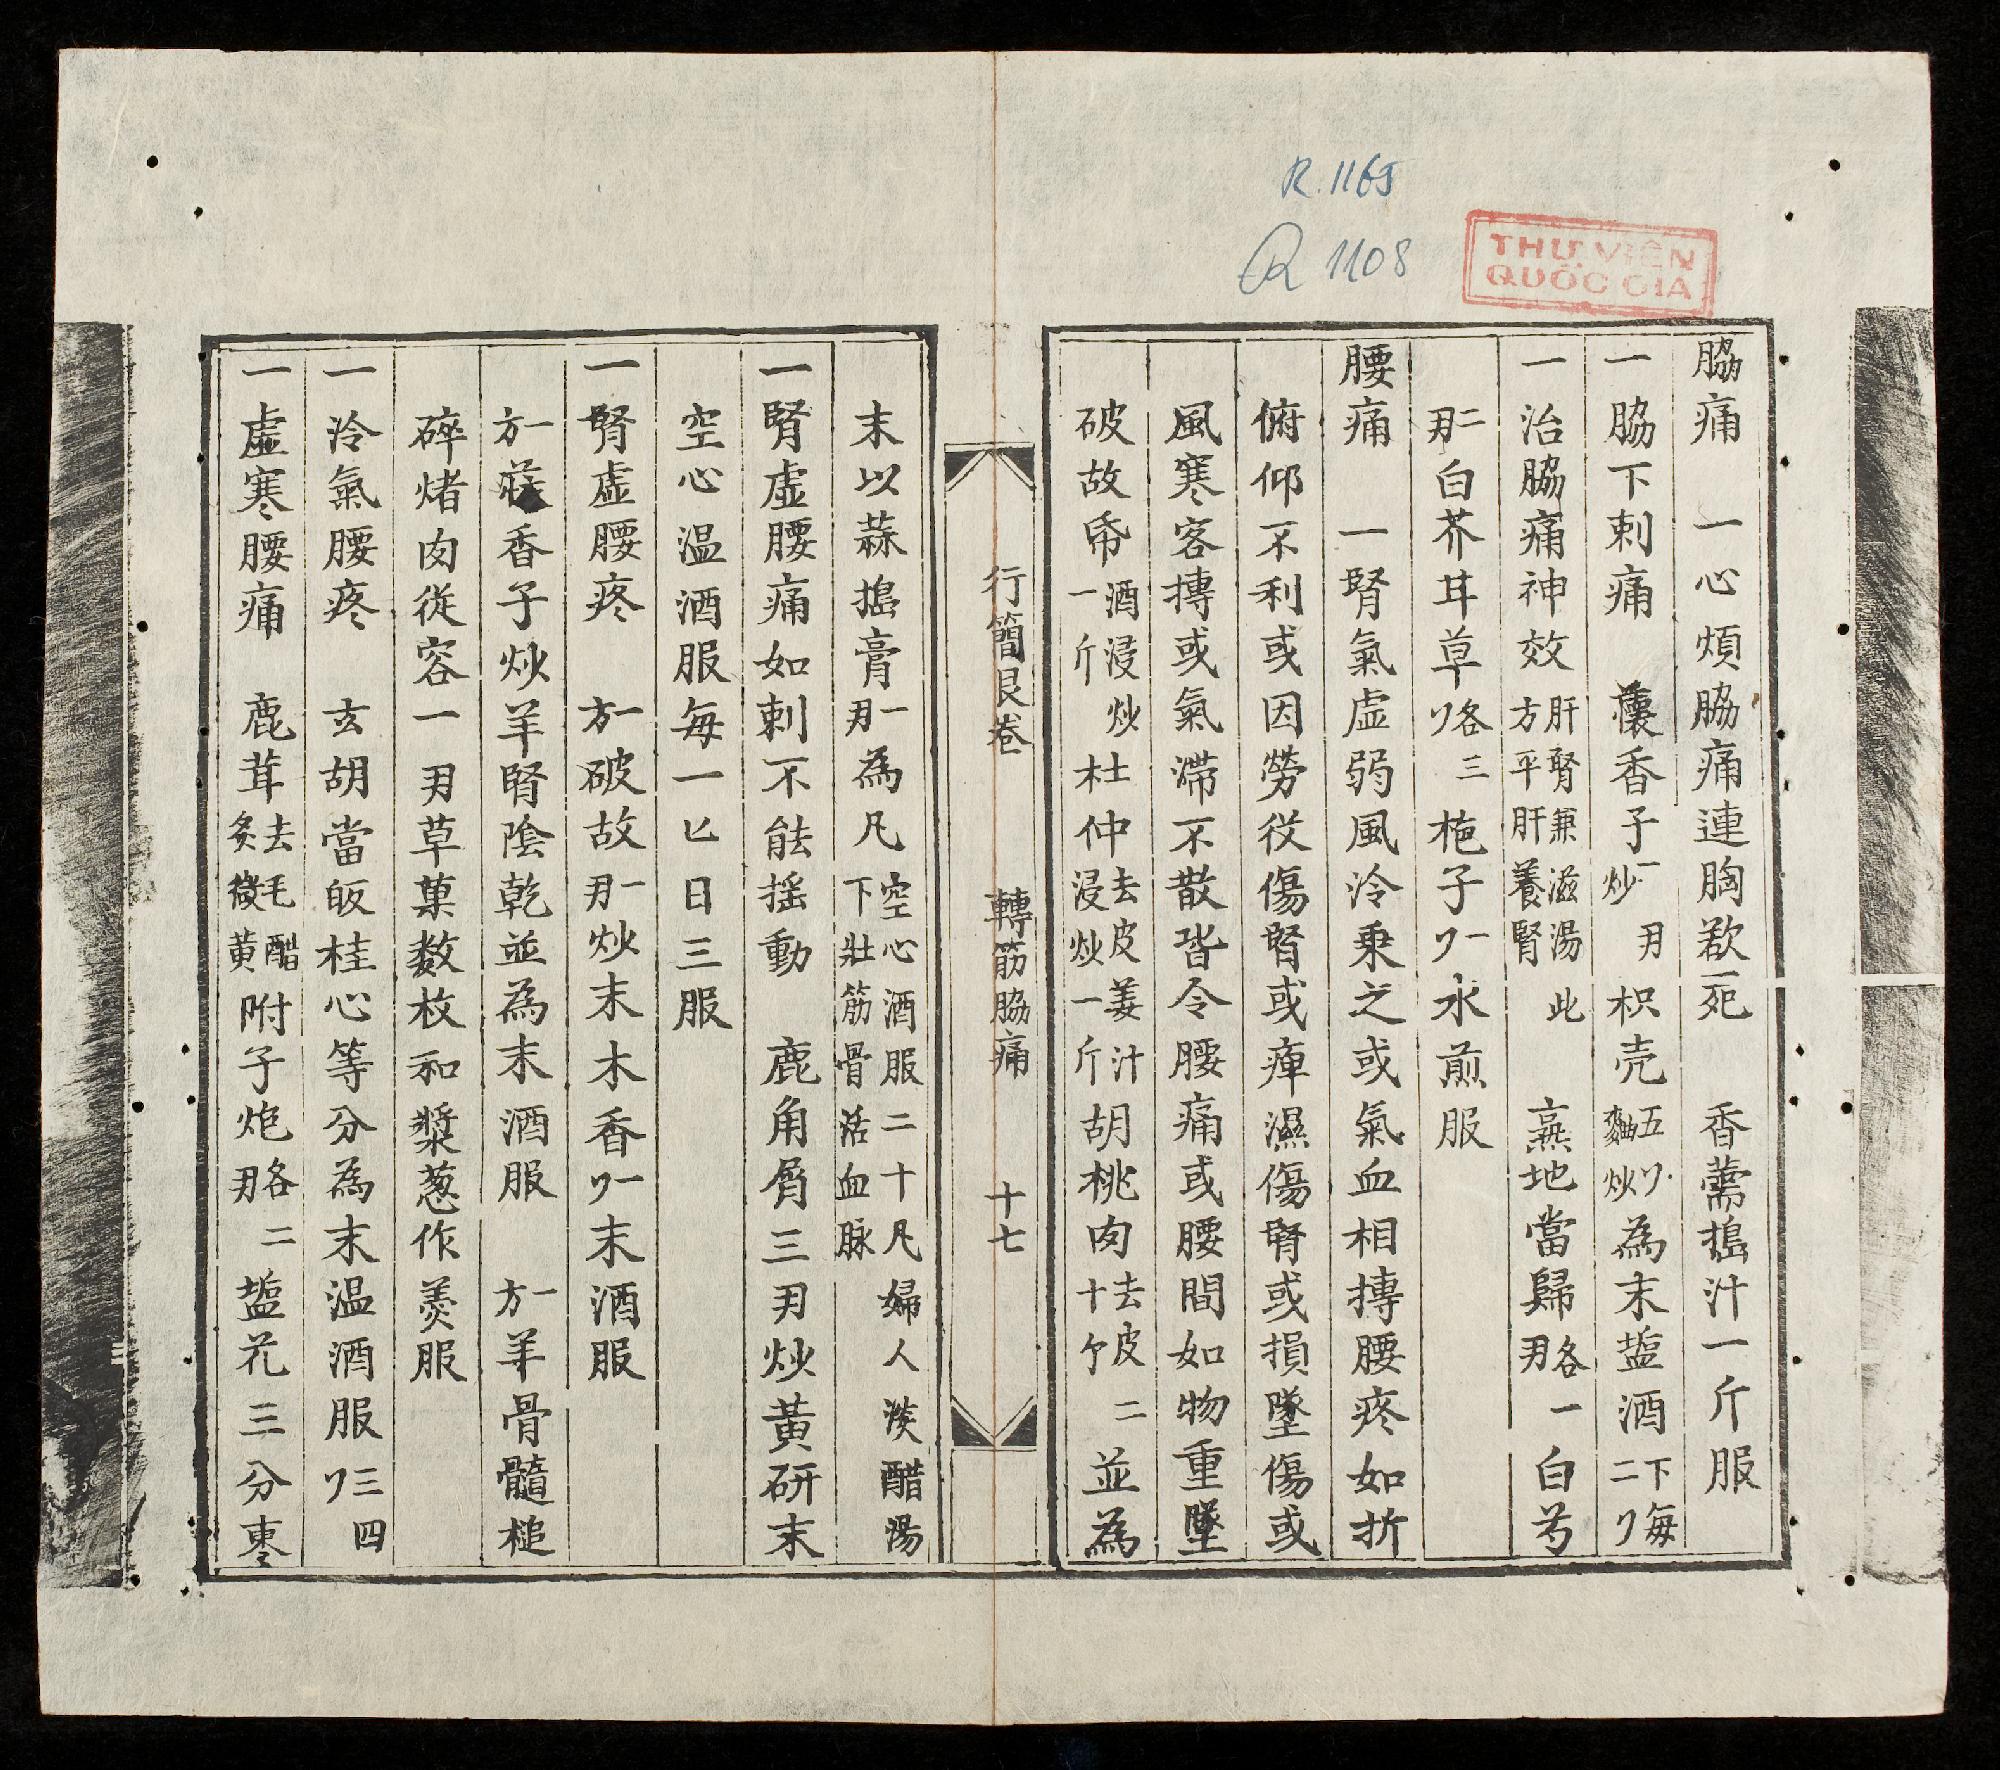 R.1165
R 1108
THƯ VIỆN
QUỐC GIA
脇痛　一心煩脇痛連胸欲死　香薷搗汁一斤服
一脇下刺痛　蘹香子一炒刃枳壳五ソ麯炒為末塩酒下每二ソ
一治脇痛神效肝腎兼滋湯此方平肝養腎　熹地當歸各一刃白芍
二刃白芥甘草各三ソ梔子一ソ水煎服
腰痛　一腎氣虛弱風冷乘之或氣血相摶腰疼如折
俯仰不利或因勞役傷腎或痺濕傷腎或損墜傷或
風寒客摶或氣滯不散皆令腰痛或腰間如物重墜
破故帋酒浸炒一斤杜仲去皮姜汁浸炒一斤胡桃肉去皮二十个並為
行簡艮卷　轉筋脇痛　十七
末以蒜搗膏一刃為凡空心酒服二十凡婦人淡醋湯下壯筋骨活血脉
一腎虛腰痛如刺不能摇動　鹿角屑三刃炒黃研末
空心温酒服每一匕日三服
一腎虛腰疼　一方破故一刃炒末木香一ソ末酒服
一方香子炒羊腎陰乾並為末酒服　一方羊骨髓槌
碎㷩肉從容一刃草菓数枚和漿葱作羹服
一冷氣腰疼　玄胡當皈桂心等分為末温酒服三四ソ
一虛寒腰痛　鹿茸去毛醋炙微黃附子炮各二刃塩花三分枣